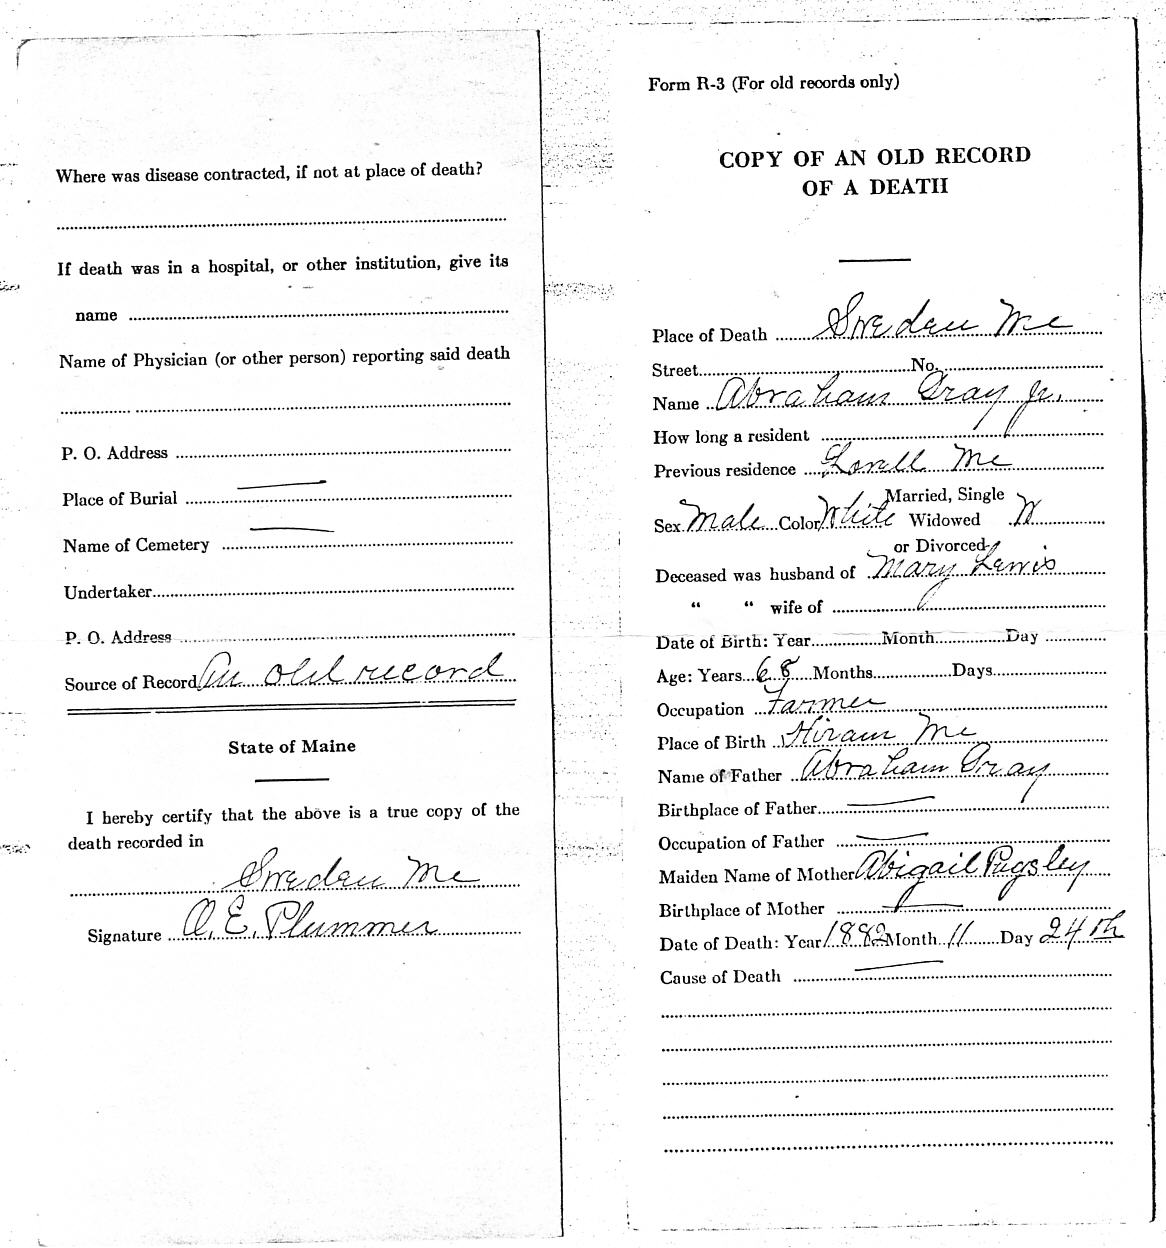 Where was disease contracted, if not at place of death?
If death was in a hospital, or other institution, give its
name
Name of Physician (or other person) reporting said death
P. O. Address
Place of Burial
Name of Cemetery
Undertaker
P. O. Address
Source of Record An old record
State of Maine
I hereby certify that the above is a true copy of the
death recorded in
Sweden Me
Signature O. E. Plummer
Form R-3 (For old records only)
COPY OF AN OLD RECORD
OF A DEATH
Place of Death Sweden Me
Street No.
Name Abraham Gray Jr.
How long a resident
Previous residence Lovell Me
Married, Single
Sex Male Color White Widowed W
or Divorced
Deceased was husband of Mary Lewis
“ “ wife of
Date of Birth: Year Month Day
Age: Years 68 Months Days
Occupation Farmer
Place of Birth Hiram Me
Name of Father Abraham Gray
Birthplace of Father
Occupation of Father
Maiden Name of Mother Abigail Pugsley
Birthplace of Mother
Date of Death: Year 1882 Month 11 Day 24th
Cause of Death